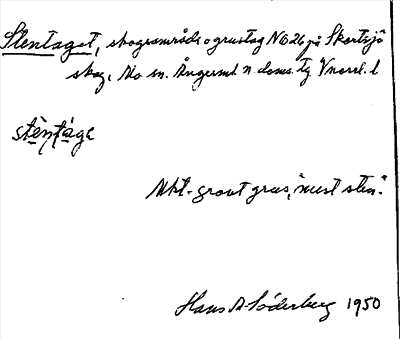 Stentaget, skogsområde o grustag NB26 på Skortsjö
skog, No sn. Ångerml. n. doms. tg Vnorrl. l
stèntáge
Mkt. grovt grus, "mest sten."
Hans A Söderberg 1950